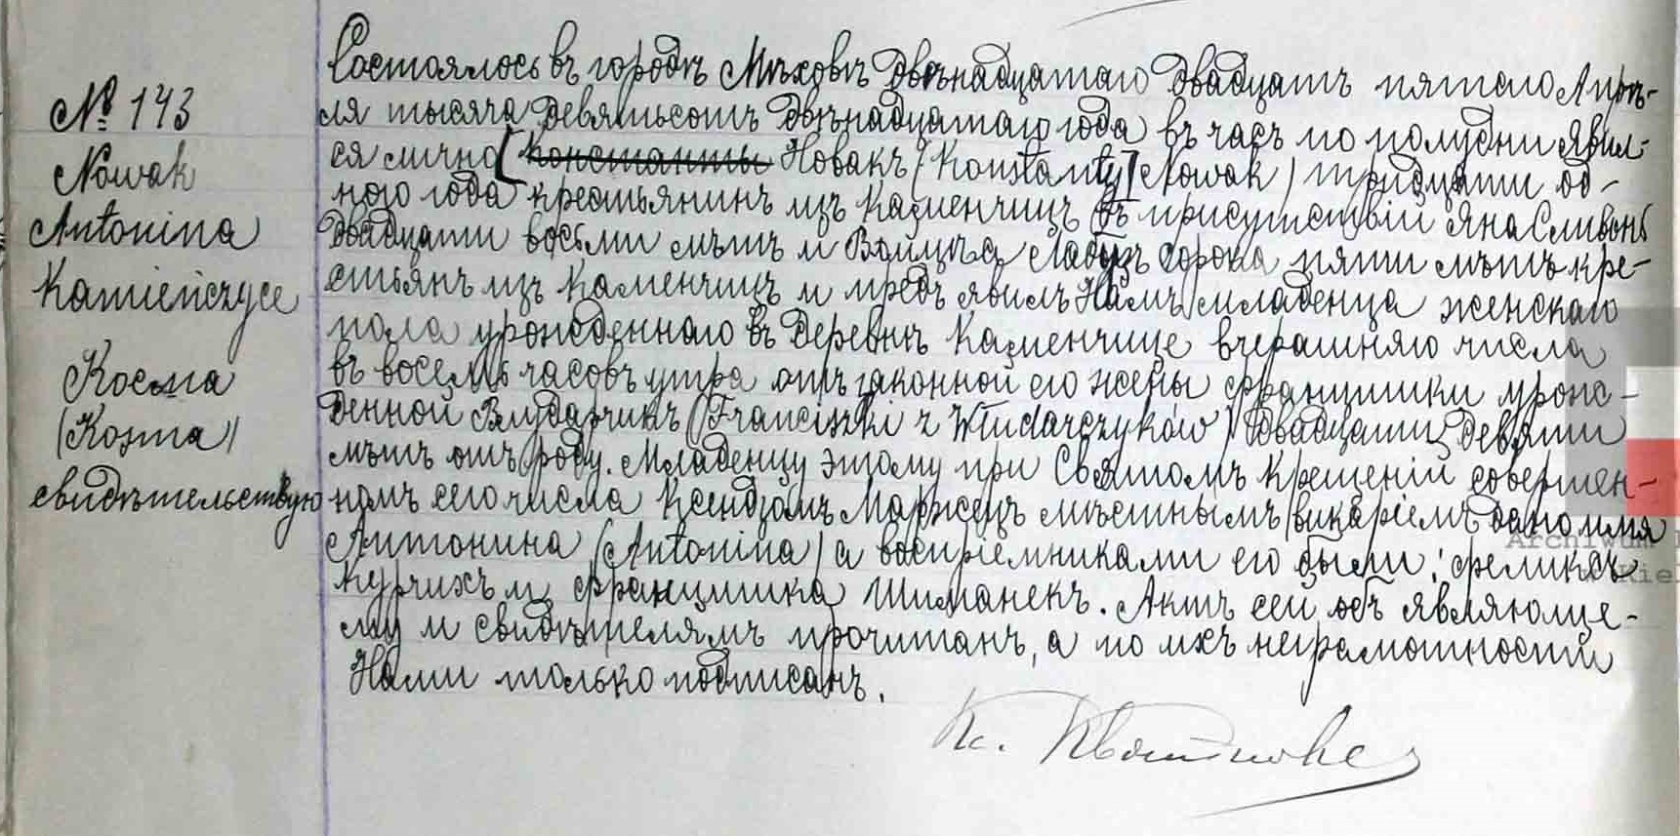 № 143
Nowak
Antonina
Kamieńczyce
Косма
(Kozma)
свидѣтельствую
Состоялось въ городѣ Мѣховѣ двѣнадцатаго двадцать пятаго Апрѣ-
ля тысяча девятьсотъ двѣнадцатаго года въ часъ по полудни явил-
ся лично [Константы Новакъ (Konstanty] Nowak) тридцати од-
ного года крестьянинъ изъ Каменчицъ въ присутствіи Яна Сливонь
двадцати восьми лѣтъ и Войцѣха сорока пяти лѣтъ кре-
стьянъ изъ Каменчицъ и предъявилъ Намъ младенца женскаго
пола урожденнаго въ деревнѣ Каменчице вчерашняго числа
въ восемь часовъ утра отъ законной его жены Францишки урож-
денной Влударчикъ (Franciszki z Włudarczyków) двадцати девяти
лѣтъ отъ роду. Младенцу этому при Святомъ Крещеніи совершен-
номъ сего числа Ксендзомъ Маржецъ мѣстнымъ викаріемъ дано имя
Антонина (Antonina) а воспріемниками его были: Феликсъ
Курчихъ и Францишка Шиманекъ. Актъ сей объявляюще-
му и свидѣтелямъ прочитанъ, а по ихъ неграмотности
Нами только подписанъ.